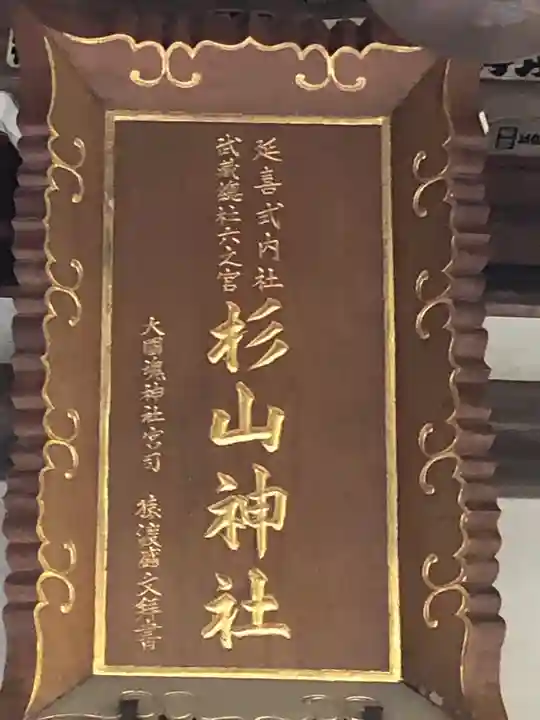 延喜式内社
武蔵總社六之宮
杉山神社
大國魂神社宮司 猿渡盛文拝書